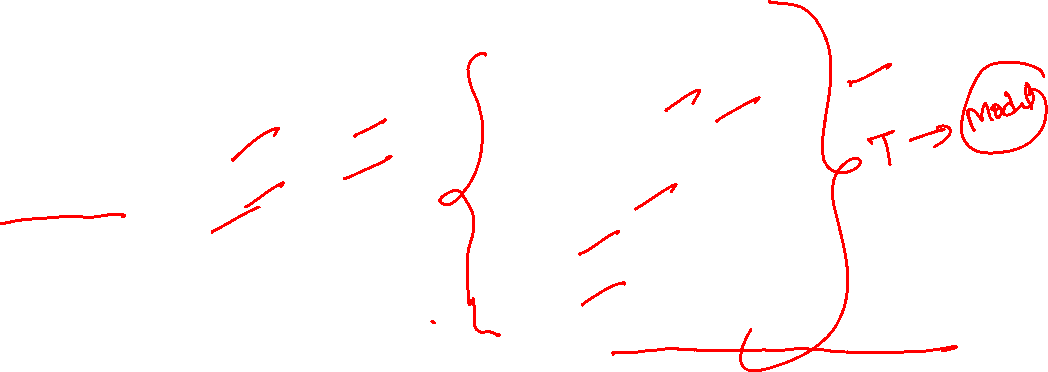 T → Model